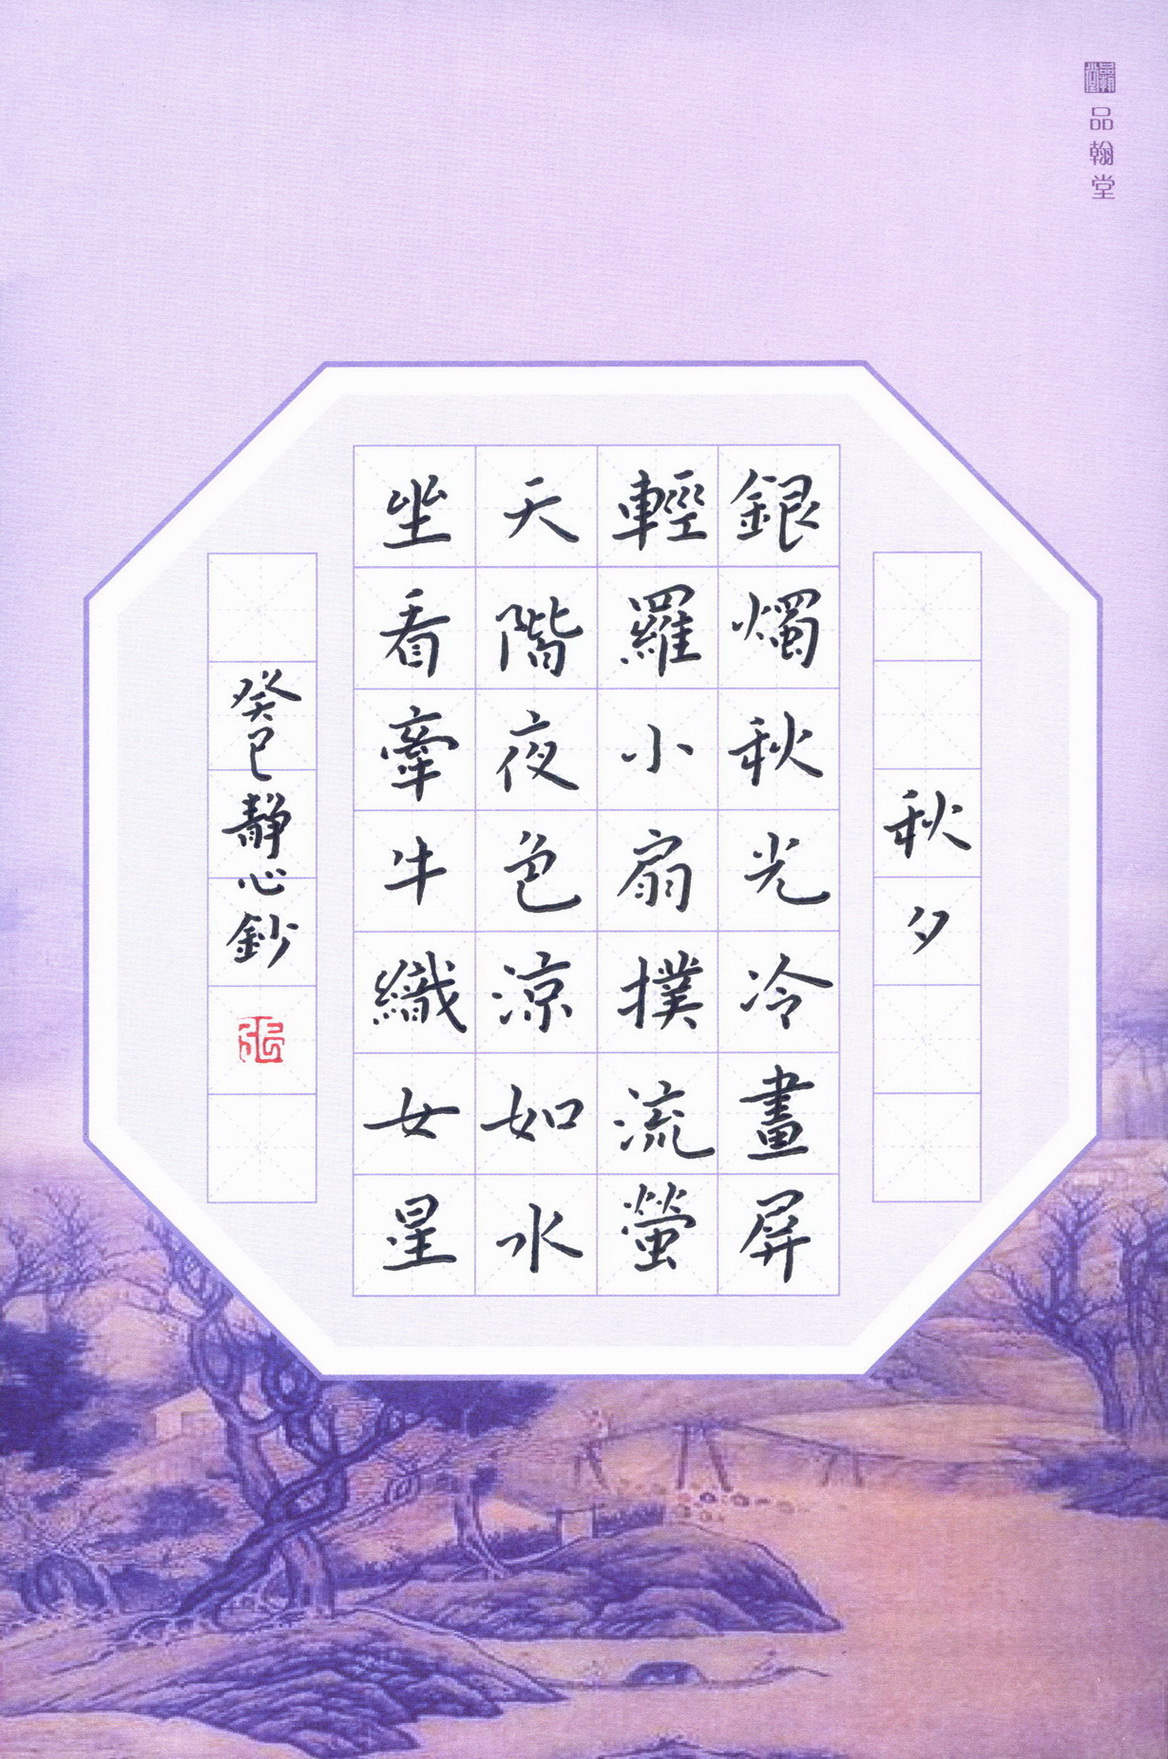 品翰堂
秋夕
銀燭秋光冷畫屏
輕羅小扇撲流螢
天階夜色涼如水
坐看牽牛織女星
癸巳靜心鈔
張